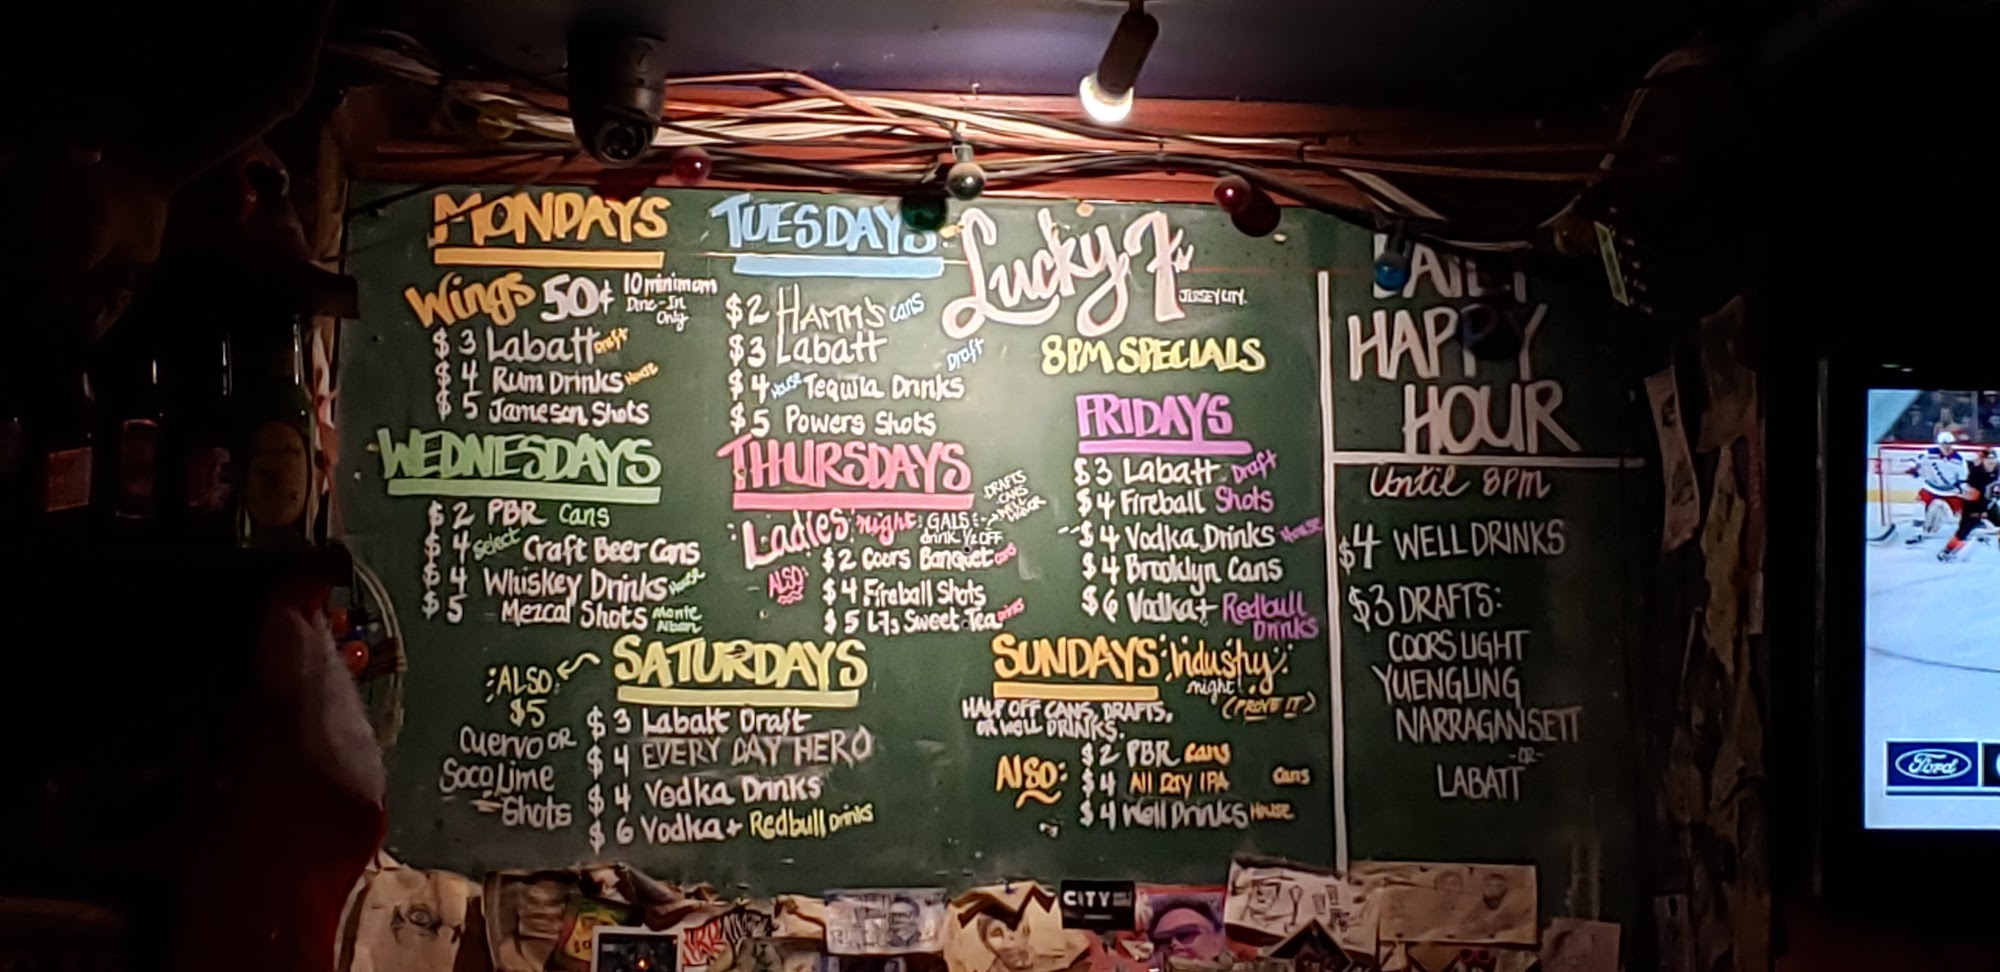 MONDAYS
Wings 50¢ 10 minimum
Dine-In
Only
$3 Labatt Draft
$4 Rum Drinks House
$5 Jameson Shots
TUESDAYS
$2 HAMM'S cans
$3 Labatt Draft
$4 House Tequila Drinks
$5 Powers Shots
Lucky 7
JERSEY CITY
8PM SPECIALS
WEDNESDAYS
$2 PBR Cans
$4 Select Craft Beer Cans
$4 Whiskey Drinks House
$5 Mezcal Shots Monte
Alban
THURSDAYS
Ladies night: GALS
drink ½ OFF
DRAFTS
CANS
WELL
LIQUOR
ALSO:
$2 Coors Banquet cans
$4 Fireball Shots
$5 L7s Sweet Tea Drinks
FRIDAYS
$3 Labatt Draft
$4 Fireball Shots
$4 Vodka Drinks House
$4 Brooklyn Cans
$6 Vodka + Redbull
Drinks
SATURDAYS
$3 Labatt Draft
$4 EVERY DAY HERO
$4 Vodka Drinks
$6 Vodka + Redbull Drinks
ALSO
$5
Cuervo OR
SoCo Lime
Shots
SUNDAYS: Industry
night! (PROVE IT)
HALF OFF CANS, DRAFTS,
OR WELL DRINKS.
ALSO:
$2 PBR cans
$4 All Day IPA Cans
$4 Well Drinks House
DAILY
HAPPY
HOUR
Until 8PM
$4 WELL DRINKS
$3 DRAFTS:
COORS LIGHT
YUENGLING
NARRAGANSETT
-OR-
LABATT
Ford
CITY